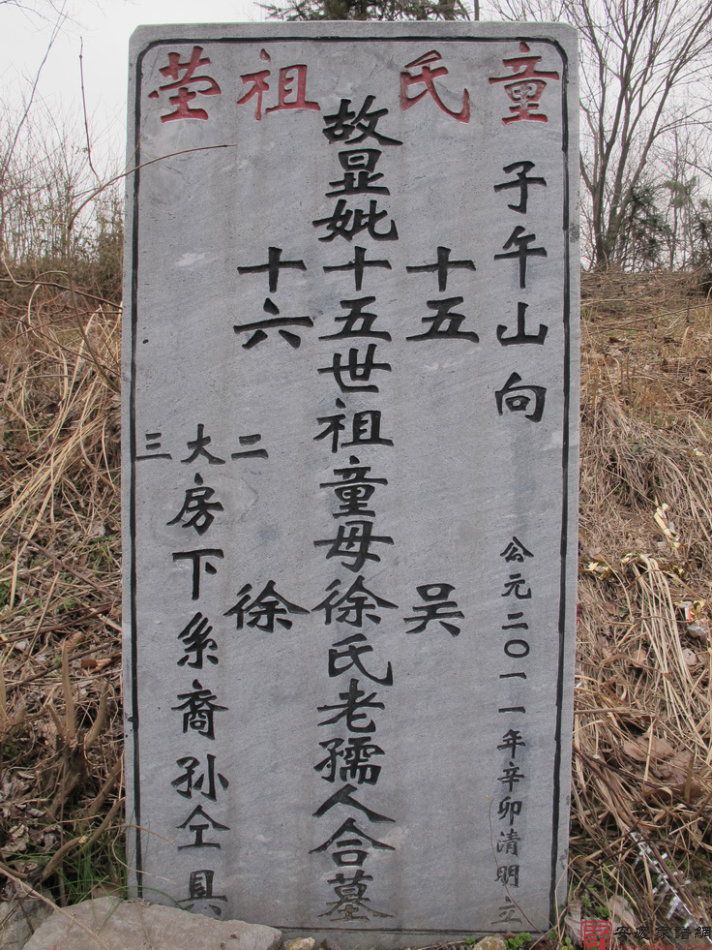 童氏祖茔
子午山向
公元二〇一一年辛卯清明立
十五 吴
故显妣十五世祖童母徐氏老孺人合墓
十六 徐
二大三
房下系裔孙仝具
安庆家谱網